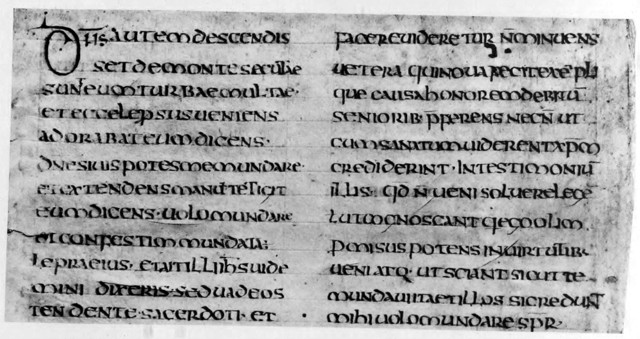 his autem descendis
set de monte secutae
sunt eum turbae multae·
et ecce lepsus ueniens
adorabat eum dicens·
dne si uis potes me mundare·
et extendens manū tetigit
eum dicens· uolo mundare
et confestim mundata
lepra eius· et ait illi ihs uide
mini dixeris sed uade os
tendente sacerdoti· et
facere uideretur n̄ minuens
uetera qui noua fecit exēpli
que causa honorem debitū
seniorib; p̄ferens nec n̄ ut
cum sanatum uiderent xpm
crediderint· in testimoniū
illis· qđ n̄ ueni soluere legē
cnoscant olim
misus potens in uirtutib;
ueni atq· ut sciant sicut te
mundaui ita et illos si credunt
mihi uolo mundare spr·